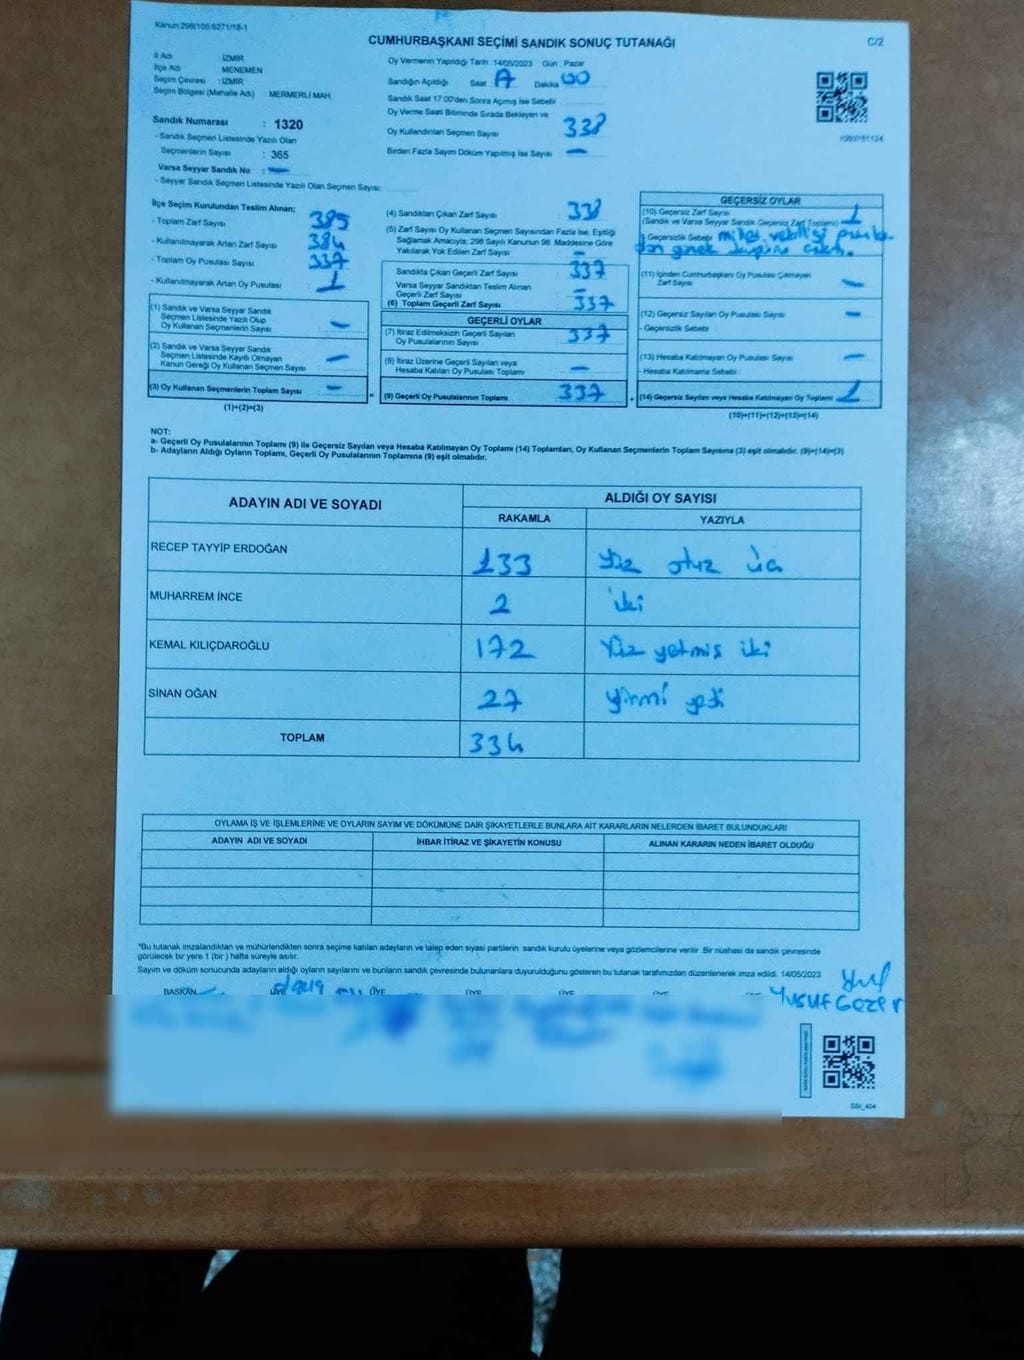 Kanun:298/105;6271/18-1
CUMHURBAŞKANI SEÇİMİ SANDIK SONUÇ TUTANAĞI
C/2
İl Adı : İZMİR
İlçe Adı : MENEMEN
Seçim Çevresi : İZMİR
Seçim Bölgesi (Mahalle Adı) : MERMERLİ MAH.
Oy Vermenin Yapıldığı Tarih : 14/05/2023 Gün : Pazar
Sandığın Açıldığı Saat Dakika 00
Sandık Saat 17:00'den Sonra Açımış İse Sebebi
Oy Verme Saati Bitiminde Sırada Bekleyen ve
Oy Kullandırılan Seçmen Sayısı 338
Birden Fazla Sayım Döküm Yapılmış İse Sayısı —
Sandık Numarası : 1320
- Sandık Seçmen Listesinde Yazılı Olan
Seçmenlerin Sayısı : 365
Varsa Seyyar Sandık No : —
- Seyyar Sandık Seçmen Listesinde Yazılı Olan Seçmen Sayısı
İlçe Seçim Kurulundan Teslim Alınan;
- Toplam Zarf Sayısı 385
- Kullanılmayarak Artan Zarf Sayısı 384
- Toplam Oy Pusulası Sayısı 337
- Kullanılmayarak Artan Oy Pusulası 1
(1) Sandık ve Varsa Seyyar Sandık
Seçmen Listesinde Yazılı Olup
Oy Kullanan Seçmenlerin Sayısı —
(2) Sandık ve Varsa Seyyar Sandık
Seçmen Listesinde Kayıtlı Olmayan
Kanun Gereği Oy Kullanan Seçmen Sayısı —
(3) Oy Kullanan Seçmenlerin Toplam Sayısı —
(1)+(2)=(3)
(4) Sandıktan Çıkan Zarf Sayısı 338
(5) Zarf Sayısı Oy Kullanan Seçmen Sayısından Fazla İse, Eşitliği
Sağlamak Amacıyla; 298 Sayılı Kanunun 98. Maddesine Göre
Yakılarak Yok Edilen Zarf Sayısı —
Sandıkta Çıkan Geçerli Zarf Sayısı 337
Varsa Seyyar Sandıktan Teslim Alınan
Geçerli Zarf Sayısı —
(6) Toplam Geçerli Zarf Sayısı 337
GEÇERLİ OYLAR
(7) İtiraz Edilmeksizin Geçerli Sayılan
Oy Pusulalarının Sayısı 337
(8) İtiraz Üzerine Geçerli Sayılan veya
Hesaba Katılan Oy Pusulası Toplamı —
(9) Geçerli Oy Pusulalarının Toplamı 337
GEÇERSİZ OYLAR
(10) Geçersiz Zarf Sayısı 1
(Sandık ve Varsa Seyyar Sandık Geçersiz Zarf Toplamı)
- Geçersizlik Sebebi
(11) İçinden Cumhurbaşkanı Oy Pusulası Çıkmayan
Zarf Sayısı —
(12) Geçersiz Sayılan Oy Pusulası Sayısı —
- Geçersizlik Sebebi
(13) Hesaba Katılmayan Oy Pusulası Sayısı —
- Hesaba Katılmama Sebebi
(14) Geçersiz Sayılan veya Hesaba Katılmayan Oy Toplamı 1
(10)+(11)+(12)+(13)=(14)
NOT:
a- Geçerli Oy Pusulalarının Toplamı (9) ile Geçersiz Sayılan veya Hesaba Katılmayan Oy Toplamı (14) Toplamları, Oy Kullanan Seçmenlerin Toplam Sayısına (3) eşit olmalıdır. (9)+(14)=(3)
b- Adayların Aldığı Oyların Toplamı, Geçerli Oy Pusulalarının Toplamına (9) eşit olmalıdır.
ADAYIN ADI VE SOYADI
ALDIĞI OY SAYISI
RAKAMLA YAZIYLA
RECEP TAYYİP ERDOĞAN 133 Yüz otuz üç
MUHARREM İNCE 2 iki
KEMAL KILIÇDAROĞLU 172 Yüz yetmiş iki
SİNAN OĞAN 27 yirmi yedi
TOPLAM 334
OYLAMA İŞ VE İŞLEMLERİNE VE OYLARIN SAYIM VE DÖKÜMÜNE DAİR ŞİKAYETLERLE BUNLARA AİT KARARLARIN NELERDEN İBARET BULUNDUKLARI
ADAYIN ADI VE SOYADI İHBAR İTİRAZ VE ŞİKAYETİN KONUSU ALINAN KARARIN NEDEN İBARET OLDUĞU
*Bu tutanak imzalandıktan ve mühürlendikten sonra seçime katılan adayların ve talep eden siyasi partilerin sandık kurulu üyelerine veya gözlemcilerine verilir. Bir nüshası da sandık çevresinde
görülecek bir yere 1 (bir) hafta süreyle asılır.
Sayım ve döküm sonucunda adayların aldığı oyların sayılarını ve bunların sandık çevresinde bulunanlara duyurulduğunu gösteren bu tutanak tarafımızdan düzenlenerek imza edildi. 14/05/2023
BAŞKAN ÜYE ÜYE ÜYE ÜYE ÜYE
YUSUF GEZER